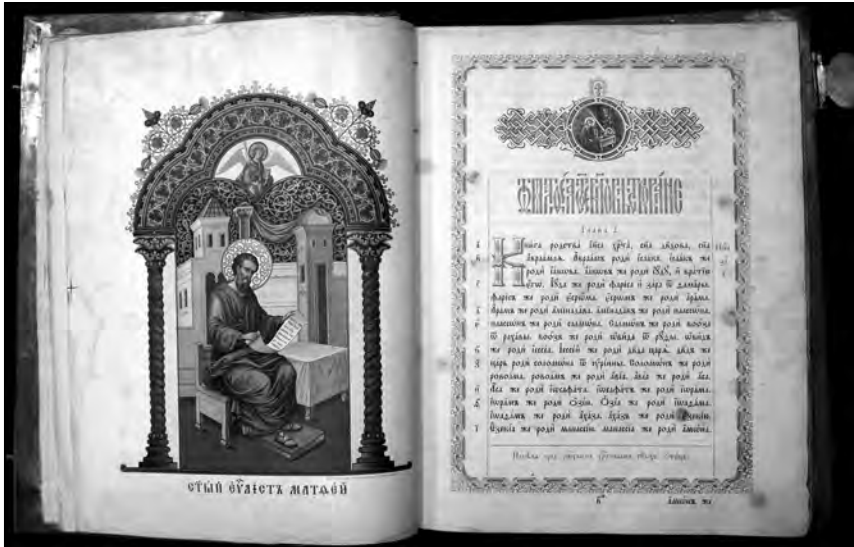 СТЫЙ ЕѴЛІСТЪ МАТѲЕЙ
Глава
Книга родства іиса хрта, сна двдова, сна
авраамля. Авраамъ роди ісаака. ісаакъ же
роди іакѡва. іакѡвъ же роди іꙋдꙋ, и братію
єгѡ. Іꙋда же роди фареса и зара ѿ ѳамары.
фаресъ же роди єсрѡма. єсрѡмъ же роди арама.
Арамъ же роди аминадава. аминадавъ же роди наассѡна.
наассѡнъ же роди салмѡна. Салмѡнъ же роди вооза
ѿ рахавы. воозъ же роди ѡвида ѿ рꙋѳы. ѡвидъ
же роди іессеа. Іессей же роди двда царѧ. двдъ же
царь роди соломѡна ѿ ꙋріины. Соломѡнъ же роди
ровоама. ровоамъ же роди авіа. авіа же роди аса.
Аса же роди іѡсафата. іѡсафатъ же роди іѡрама.
іѡрамъ же роди ѻзію. Ѻзіа же роди іѡаѳама.
іѡаѳамъ же роди ахаза. ахазъ же роди єзекію.
Єзекіа же роди манассію. манассіа же роди амѡна.
амѡнъ же